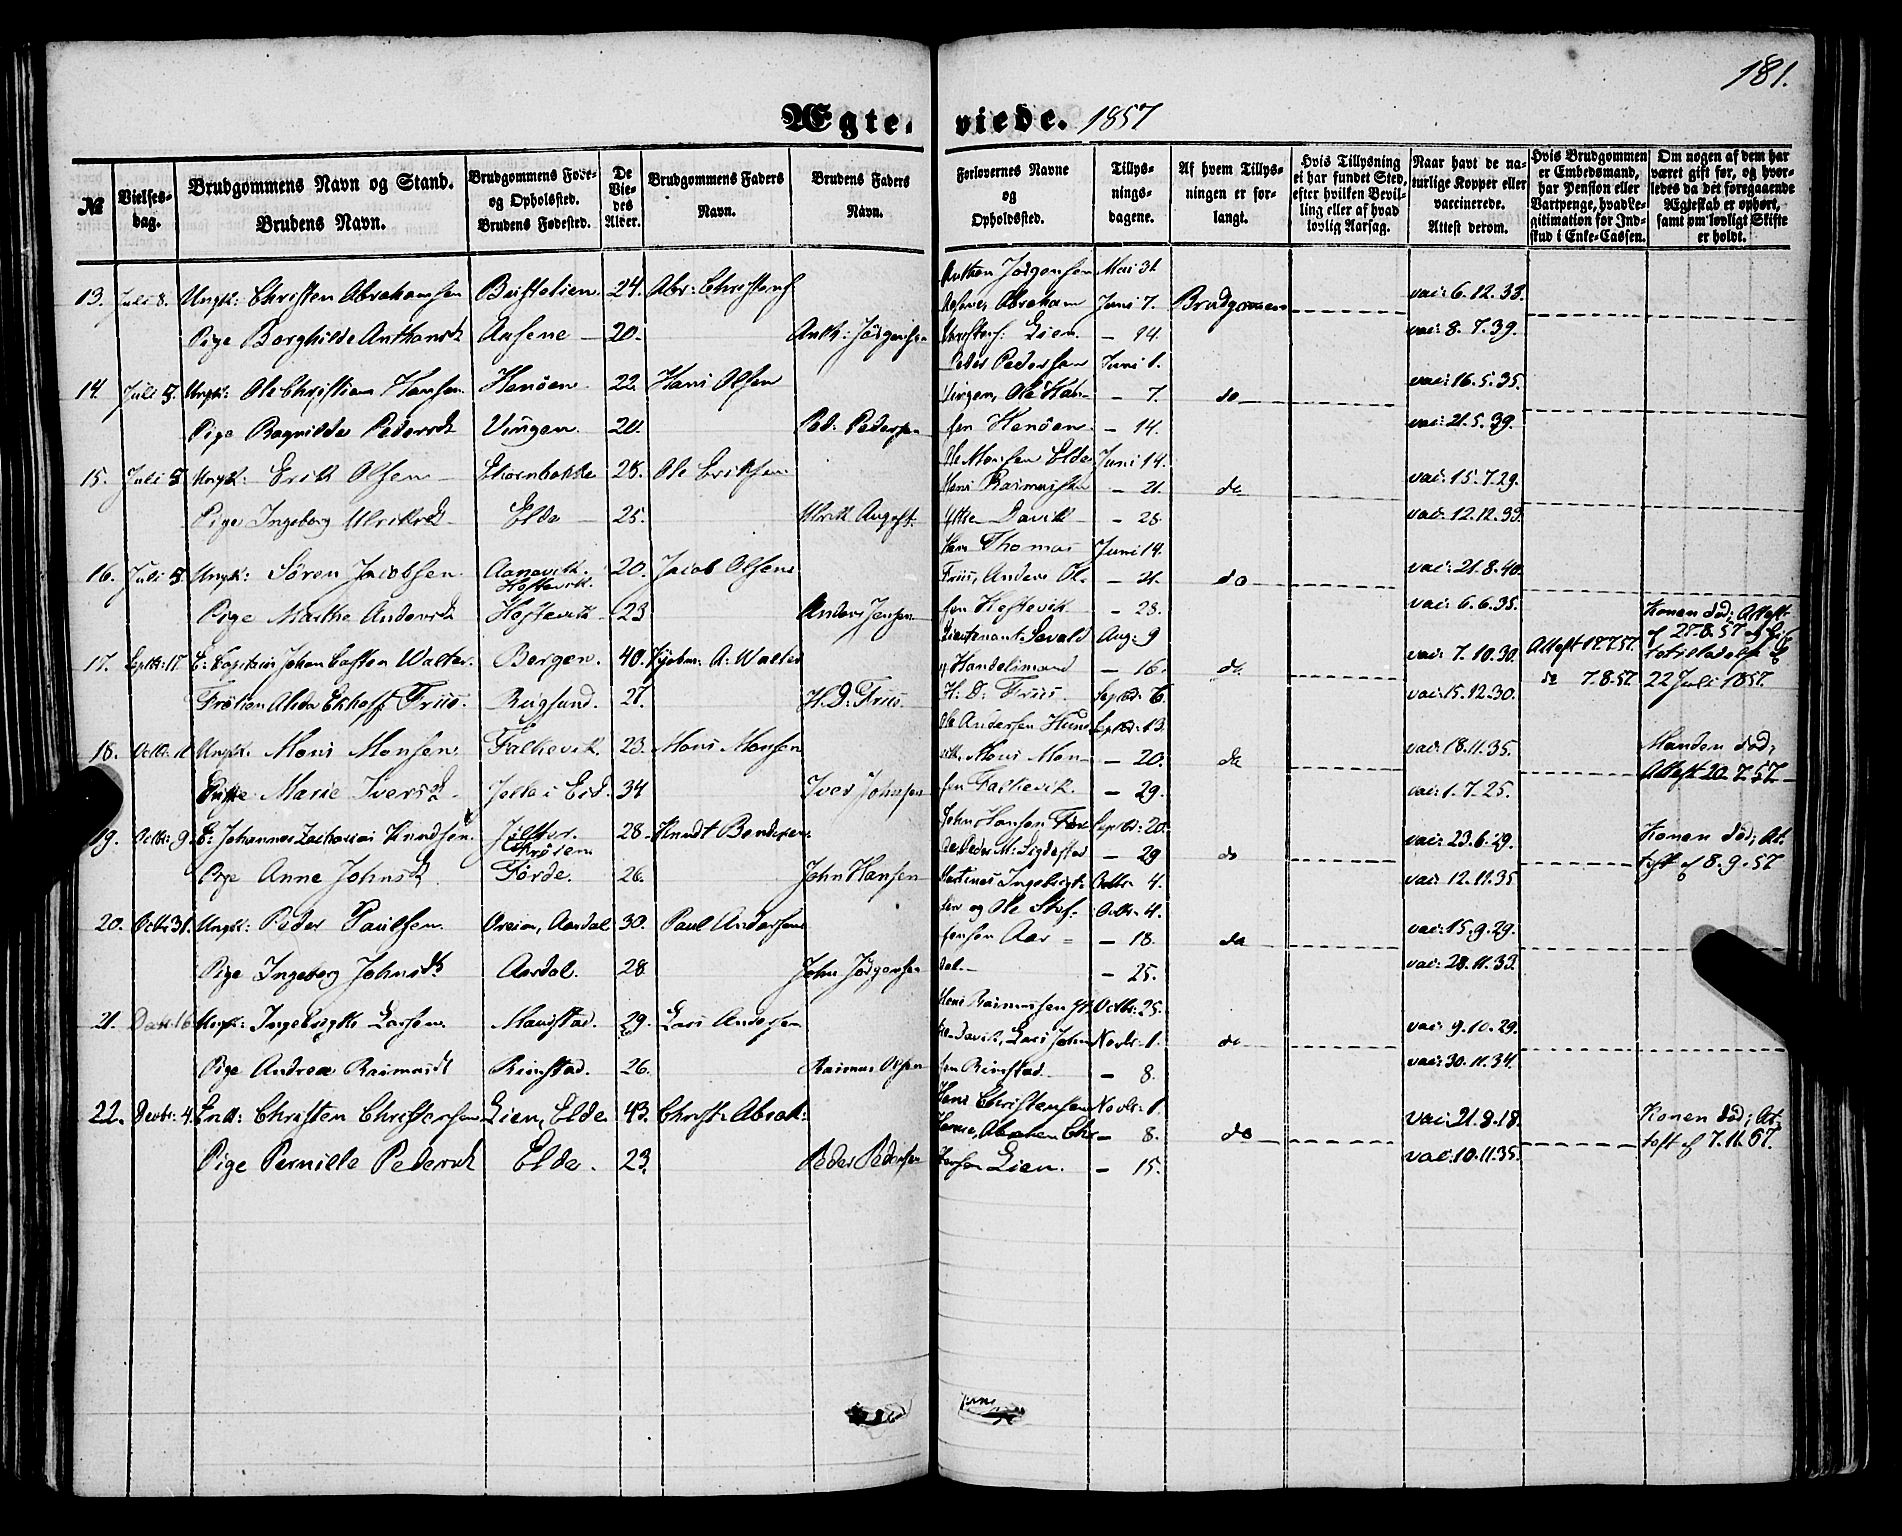 181.
Ægte. viede. 1857
№
Vielses-
dag.
Brudgommens Navn og Stand.
Brudens Navn.
Brudgommens Føde-
og Opholdsted.
Brudens Fødested.
De
Vie-
des
Alder.
Brudgommens Faders
Navn.
Brudens Faders
Navn.
Forlovernes Navne
og
Opholdssted.
Tillys-
nings-
dagene.
Af hvem Tillys-
ningen er for-
langt.
Hvis Tillysning
ei har fundet Sted,
efter hvilken Bevil-
ling eller af hvad
lovlig Aarsag.
Naar havt de na-
turlige Kopper eller
vaccinerede.
Attest derom.
Hvis Brudgommen
er Embedsmand,
har Pension eller
Vartpenge, hvad Le-
gitimation for Ind-
skud i Enke-Cassen.
Om nogen af dem har
været gift før, og hvor-
ledes da det foregaaende
Ægteskab er ophørt,
samt om lovligt Skifte
er holdt.
Anthon Jørgensen Mai 31.
13. Juli 3. Ungk: Christen Abrahamsen 24. Abr: Christens. Abraham Juni 7. Brudgommen vac: 6.12.33.
Pige Borghilde Anthonsd. Ausene 20. Anth: Jörgensen Lien. – 14. vac: 8.7.39.
Peder Pedersen Juni 1.
14. Juli 5. Ungk: Ole Christian Hansen. Henöen 22. Hans Olsen Vingen, Ole Han- – 7. do vac: 16.5.35.
Pige Ragnilde Pedersd. Vingen. 20. Ped: Pedersen sen Henöen – 14. vac: 21.5.39.
Ole Monsen Elde Juni 14.
15. Juli 5. Ungk: Erik Olsen 28. Ole Eriksen Hans Rasmussen – 21. do vac: 15.7.29.
Pige Ingeborg Ulriksd. Elde 25. Ulrik August. Yttre Davik – 28. vac: 12.12.33.
Herr Thomas Juni 14.
16. Juli 5. Ungk: Sören Jacobsen 20. Jacob Olsen Friis, Anders Ol- – 21. do vac: 21.8.40.
Hestevik.
Pige Marthe Andersd. Hestevik 23. Anders Jensen sen Hestevik – 28. vac: 6.6.35.
Konen död; Attest
Lieutenant Sevald Aug: 9 af 27.8.57
17. Septbr: 17. E: Capitain Johan Casten Walter. Bergen. 40. Kjøbm: A: Walter Handelsmand – 16. do vac: 7.10.30. Attest 17.7.57.
Frøken Alida Ekhoff Friis. Rugsund. 27. H.D: Friis H.D: Friis. Septbr: 6. vac: 15.12.30. do 7.8.57. 22 Juli 1857.
Ole Andersen Hund- Septbr: 13.
18. Octbr: 11. Ungk. Mons Monsen. Falkevik. 23. Mons Monsen vik, Mons Mon- – 20. do vac: 18.11.35. Manden död;
Enke Marie Iversd. 34 Iver Johnsen sen Falkevik. – 29. vac: 1.7.25. Attest 20.7.57.
John Hansen För- Septbr: 20.
19. Octbr: 9. E: Johannes Zacharias Knudsen. 28. Knudt Bendixen. de, Peder M: Sigdestad – 29 do vac: 23.6.29. Konen död; At-
Pige Anne Johnsd. Förde. 26. John Hansen Martinus Ingebrigt- Octbr. 4. vac: 12.11.35 test af 8.9.57
sen og Ole Stef- Octbr. 4.
20. Octbr 31. Ungk: Peder Paulsen. Aardal 30. Paul Andersen fensen Aar- – 18. do vac: 15.9.29.
Pige Ingeborg Johnsd. Aardal. 28 John Jörgensen dal. – 25. vac: 28.11.33.
Hans Rasmussen Yt- Octbr: 25.
21. 16. Ungk: Ingebrigt Larsen. Maurstad. 29. Lars Andersen tre Davik, Lars John- Novbr. 1. do vac: 9.10.29.
Pige Andrea Rasmusd. Rimstad. 26. Rasmus Olsen sen Rimstad – 8. vac: 30.11.34.
Hans Christensen Novbr. 1.
22. Decbr: 4. Enk: Christen Christensen Lien, Elde 43. Christ: Abrah: Abraham Chr- – 8. do vac: 21.9.18. Konen död; At-
Pige Pernille Pedersd. Elde. 23. Peder Pedersen stensen Lien. – 15. vac: 10.11.35. test af 7.11.57.